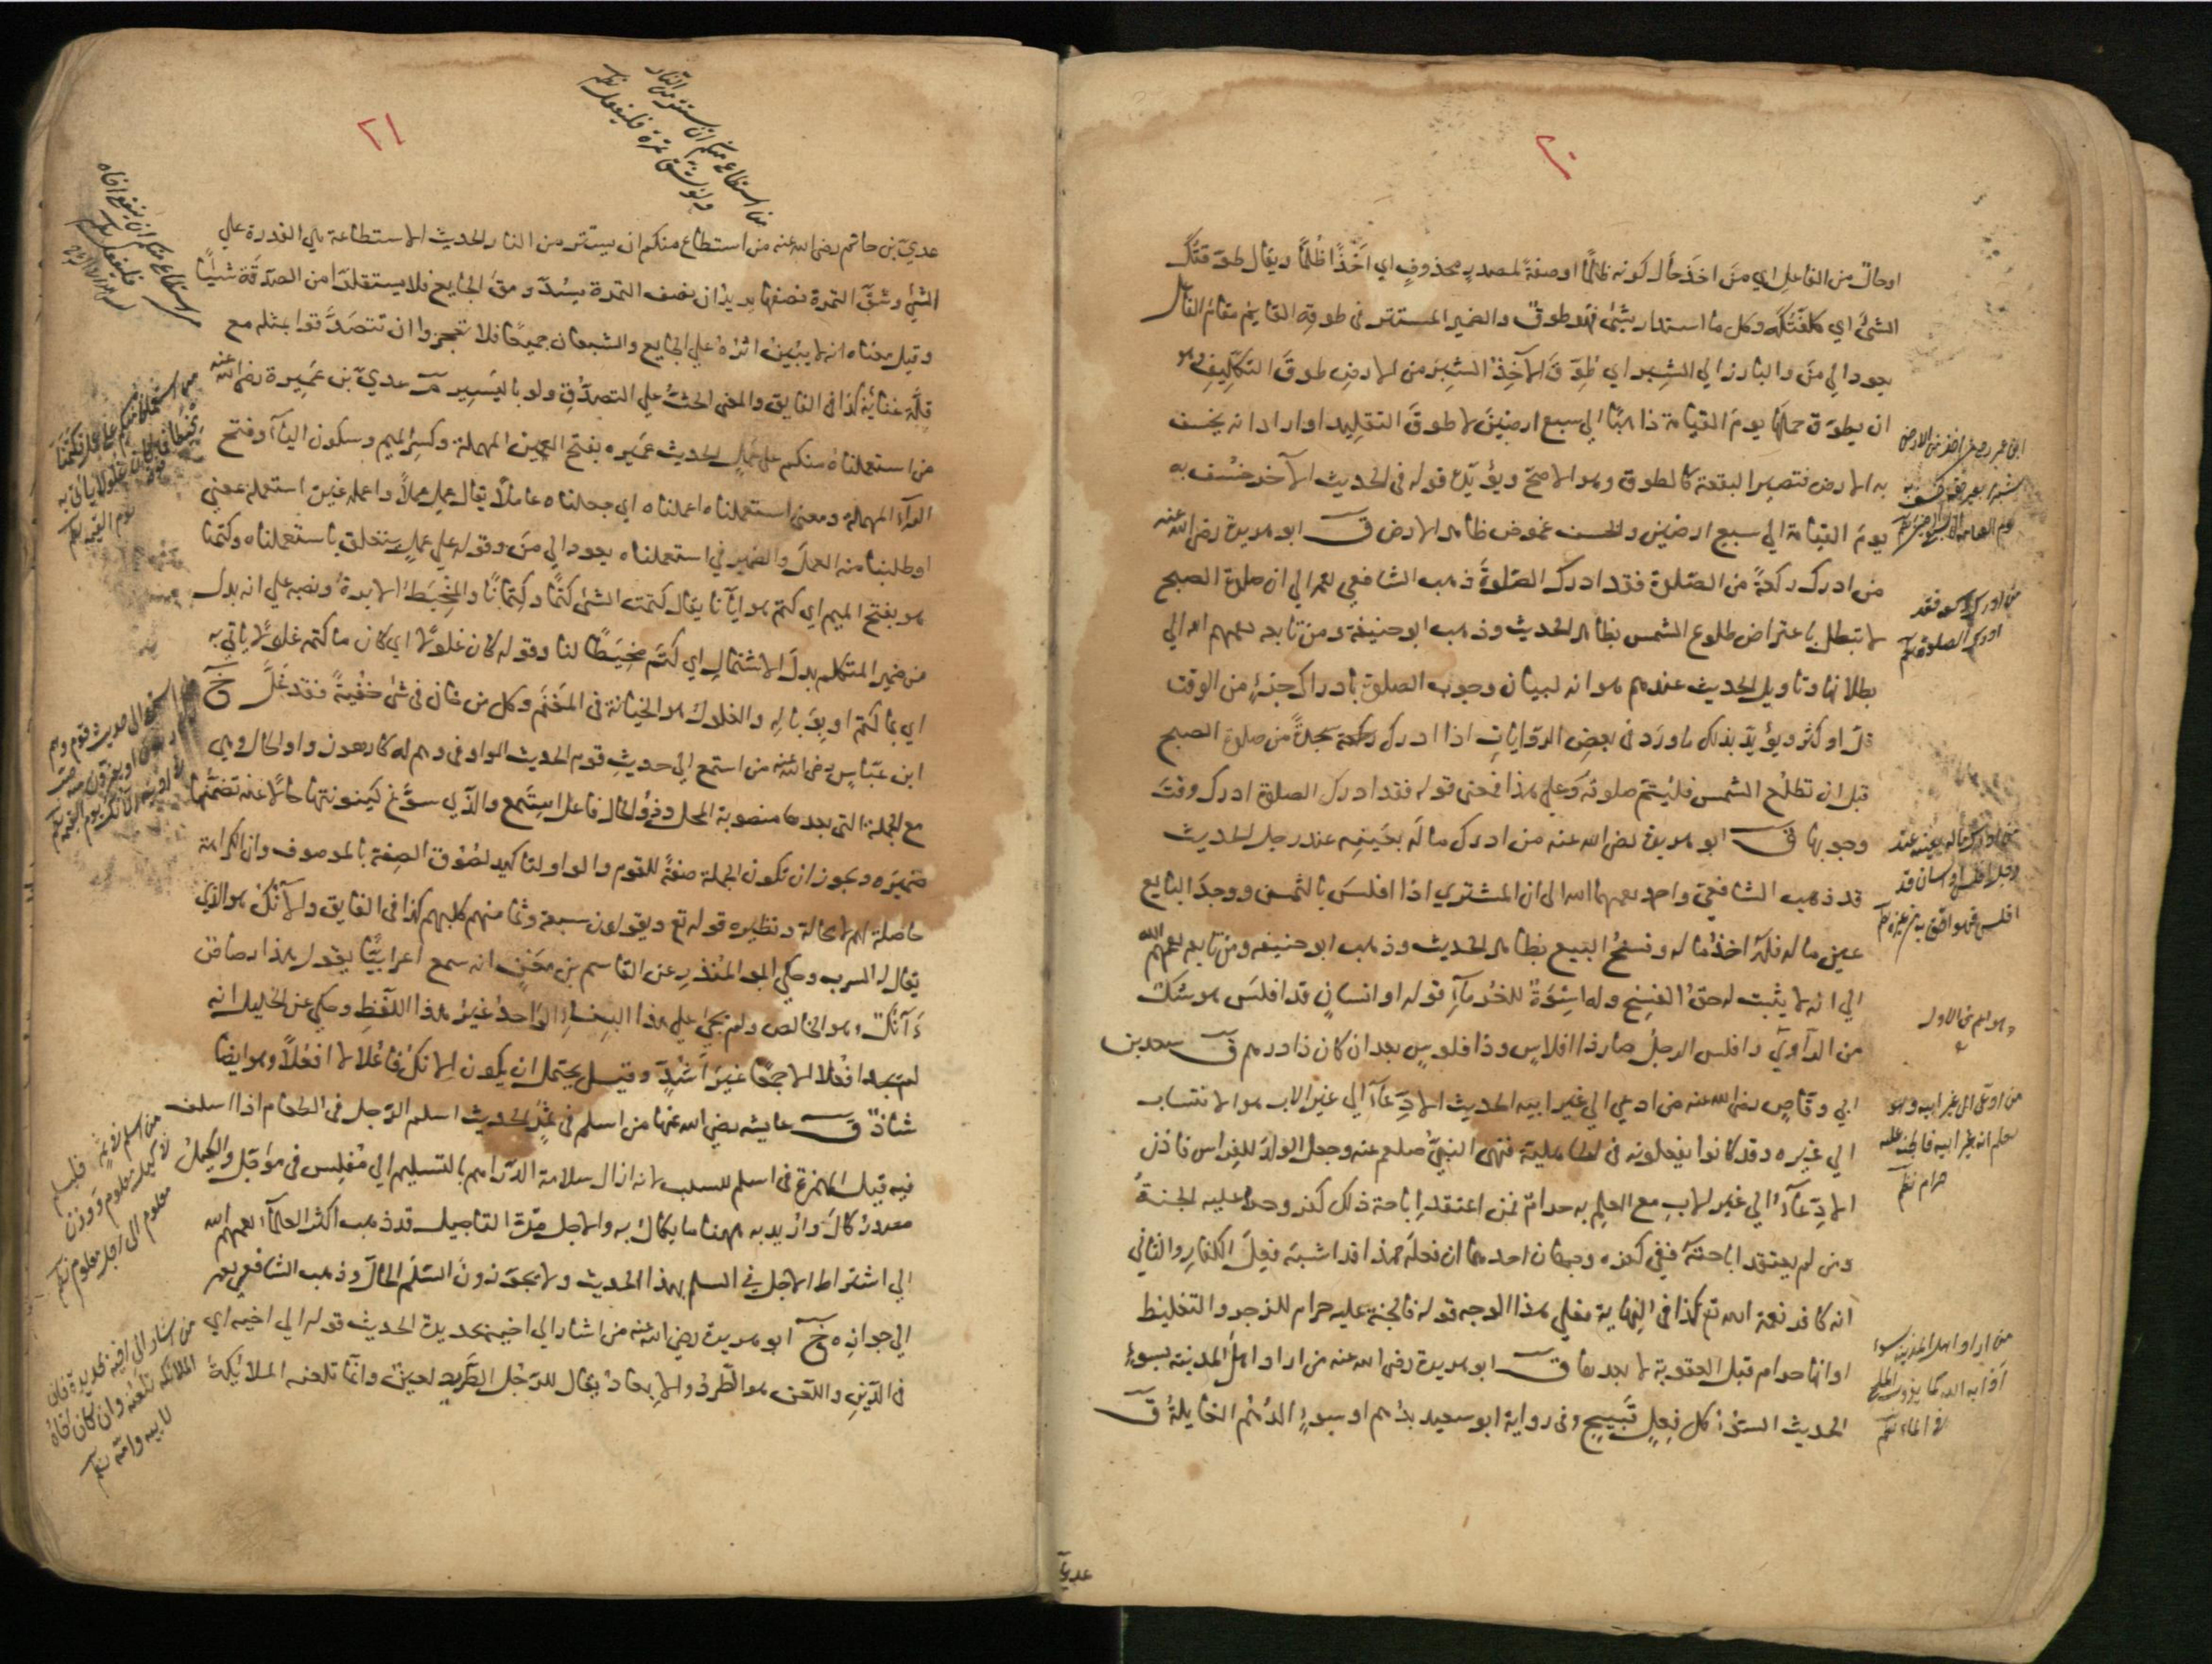 ٢٠
اوحال من الفاعل اي من اخذ حال كونه ظالما او صفة لمصدر محذوف اي اخذا ظلما ويقال طوقتك
الشئ اي كلفتكه وكل ما استدار بشئ فهو طوق والضمير المستتر في طوقه القايم مقام الفاعل
يعود الي من والبارز الي الشبر اي طوق الآخذ الشبر من الارض طوق التكليف وهو
ان يطوق حملها يوم القيامة ذاهبا الي سبع ارضين لا طوق التقليد او اراد انه يخسف
به الارض فتصير البقعة كالطوق وهو الاصح ويؤيده قوله في الحديث الآخر خسف به
يوم القيامة الي سبع ارضين والخسف غموض ظاهر الارض ق ابو هريرة رضى الله عنه
من ادرك ركعة من الصلوة فقد ادرك الصلوة ذهب الشافعي الي ان صلوة الصبح
لا تبطل باعتراض طلوع الشمس بظاهر الحديث وذهب ابو حنيفة ومن تابعه الي
بطلانها وتاويل الحديث عندهم هو انه لبيان وجوب الصلوة بادراك جزء من الوقت
قل او كثر ويؤيد بذلك ما ورد في بعض الروايات اذا ادرك سجدة من صلوة الصبح
قبل ان تطلع الشمس فليتم صلوته وعلي هذا فمعنى قوله فقد ادرك الصلوة ادرك وقت
وجوبها ق ابو هريرة رضى الله عنه من ادرك ماله بعينه عند رجل الحديث
قد ذهب الشافعي واحمد الى ان المشتري اذا افلس بالثمن ووجد البايع
عين ماله فله اخذ ماله وفسخ البيع بظاهر الحديث وذهب ابو حنيفه ومن تابعه
الي انه لا يثبت له حق الفسخ وله اسوة للغرماء قوله او انسان قد افلس هو شك
من الراوي وافلس الرجل صار ذا افلاس وذا فلوس بعد ان كان ذا درهم ق سعد بن
ابي وقاص رضى الله عنه من ادعي الي غير ابيه الحديث الادعاء الي غير الاب هو الانتساب
الي غيره وقد كانوا يفعلونه في الجاهلية فنهى النبي صلعم عنه وجعل الولد للفراش فاذن
الادعاء الي غير الاب مع العلم به حرام فمن اعتقد اباحة ذلك كفر وحرم عليه الجنة
ومن لم يعتقد اباحته ففي كفره وجهان احدهما ان فعله هذا قد اشبه فعل الكفار والثاني
انه كافر نعمة الله تع كذا في النهاية فعلي هذا الوجه قوله فالجنة عليه حرام للزجر والتغليظ
او انها حرام قبل العقوبة لا بعدها ق ابو هريرة رضى الله عنه من اراد اهل المدينة بسوء
الحديث السوء كل فعل قبيح وفى رواية ابو سعيد بدهم او سوء الدهم الغايلة ق
من ادرك ركعة فقد
ادرك الصلوة
من ادرك ماله بعينه عند
رجل افلس او انسان قد
افلس فهو احق به من غيره
من ادعى الى غير ابيه وهو
يعلم انه غير ابيه فالجنة عليه
حرام
من اراد اهل المدينة بسوء
اذابه الله كما يذوب الملح
في الماء
عدي
٢١
من استطاع منكم ان يستتر من النار
ولو بشق تمرة فليفعل
عدي بن حاتم رضى الله عنه من استطاع منكم ان يستتر من النار الحديث الاستطاعة هي القدرة علي
الشئ وشق التمرة نصفها يريد ان نصف التمرة يسد رمق الجايع فلا يستقلن من الصدقة شيئا
وقيل معناه انه لا يبين اثره علي الجايع والشبعان جميعا فلا تعجزوا ان تتصدقوا بمثله مع
قلة غنائه كذا في الفايق والمعنى الحث علي التصدق ولو باليسير م عدي بن عميرة رضى الله عنه
من استعملناه منكم علي عمل الحديث عميره بفتح العين المهملة وكسر الميم وسكون الياء وفتح
الراء المهملة ومعنى استعملناه اعملناه اي جعلناه عاملا يقال عمل عملا واعمله غيره استعمله بمعنى
او طلبنا منه العمل والضمير في استعملناه يعود الي من وقوله علي عمل يتعلق باستعملناه وكتمنا
هو بفتح الميم اي كتم هو ايانا يقال كتمت الشئ كتما وكتمانا والمخيط الابرة ونصبه علي انه بدل
من ضمير المتكلم بدل الاشتمال اي كتم مخيطا لنا وقوله كان غلولا اي كان ما كتمه غلولا ياتي به
اي بما كتم او بوباله والغلول هو الخيانة في المغنم وكل من خان في شئ خفية فقد غل خ
ابن عباس رضى الله عنه من استمع الي حديث قوم الحديث الواو في وهم له كارهون واو الحال وهي
مع الجملة التي بعدها منصوبة المحل وذو الحال فاعل استمع والذي سوغ كينونتها حالا عنه تضمنها
ضميره ويجوز ان تكون الجملة صفة للقوم والواو لتاكيد لصوق الصفة بالموصوف وان الكراهة
حاصلة لهم لا محالة ونظيره قوله تع ويقولون سبعة وثامنهم كلبهم كذا في الفايق والآنك هو الذي
يقال له السرب وحكي ابن المنذر عن القاسم بن معن انه سمع اعرابيا يقول هذا رصاص
آنك وهو الخالص ولم يجئ علي هذا البناء الواحد غير هذا اللفظ وحكي عن الخليل انه
لم يجد افعلا الا جمعا غير اشد وقيل يحتمل ان يكون الانك فاعلا لا افعلا وهو ايضا
شاذ ق عايشه رضى الله عنها من اسلم في ثمر الحديث اسلم الرجل في الطعام اذا اسلف
فيه قيل الهمزة في اسلم للسلب لانه ازال سلامة الدراهم بالتسليم الي مفلس في مؤجل والكيل
مصدر كال واريد به ههنا ما يكال به والاجل مدة التاجيل قد ذهب اكثر العلماء
الي اشتراط الاجل في السلم بهذا الحديث ولا يجوزون السلم الحال وذهب الشافعي
الي جوازه خ ابو هريرة رضى الله عنه من اشار الي اخيه بحديدة الحديث قوله الي اخيه اي
في الدين واللعن هو الطرد والابعاد يقال للرجل الطريد لعين وانما تلعنه الملائكة
من استطاع منكم ان ينفع اخاه
فليفعل
من اسلم في ثمر فليسلم
في كيل معلوم ووزن
معلوم الى اجل معلوم
من اشار الى اخيه بحديدة فان
الملائكة تلعنه وان كان اخاه
لابيه وامه